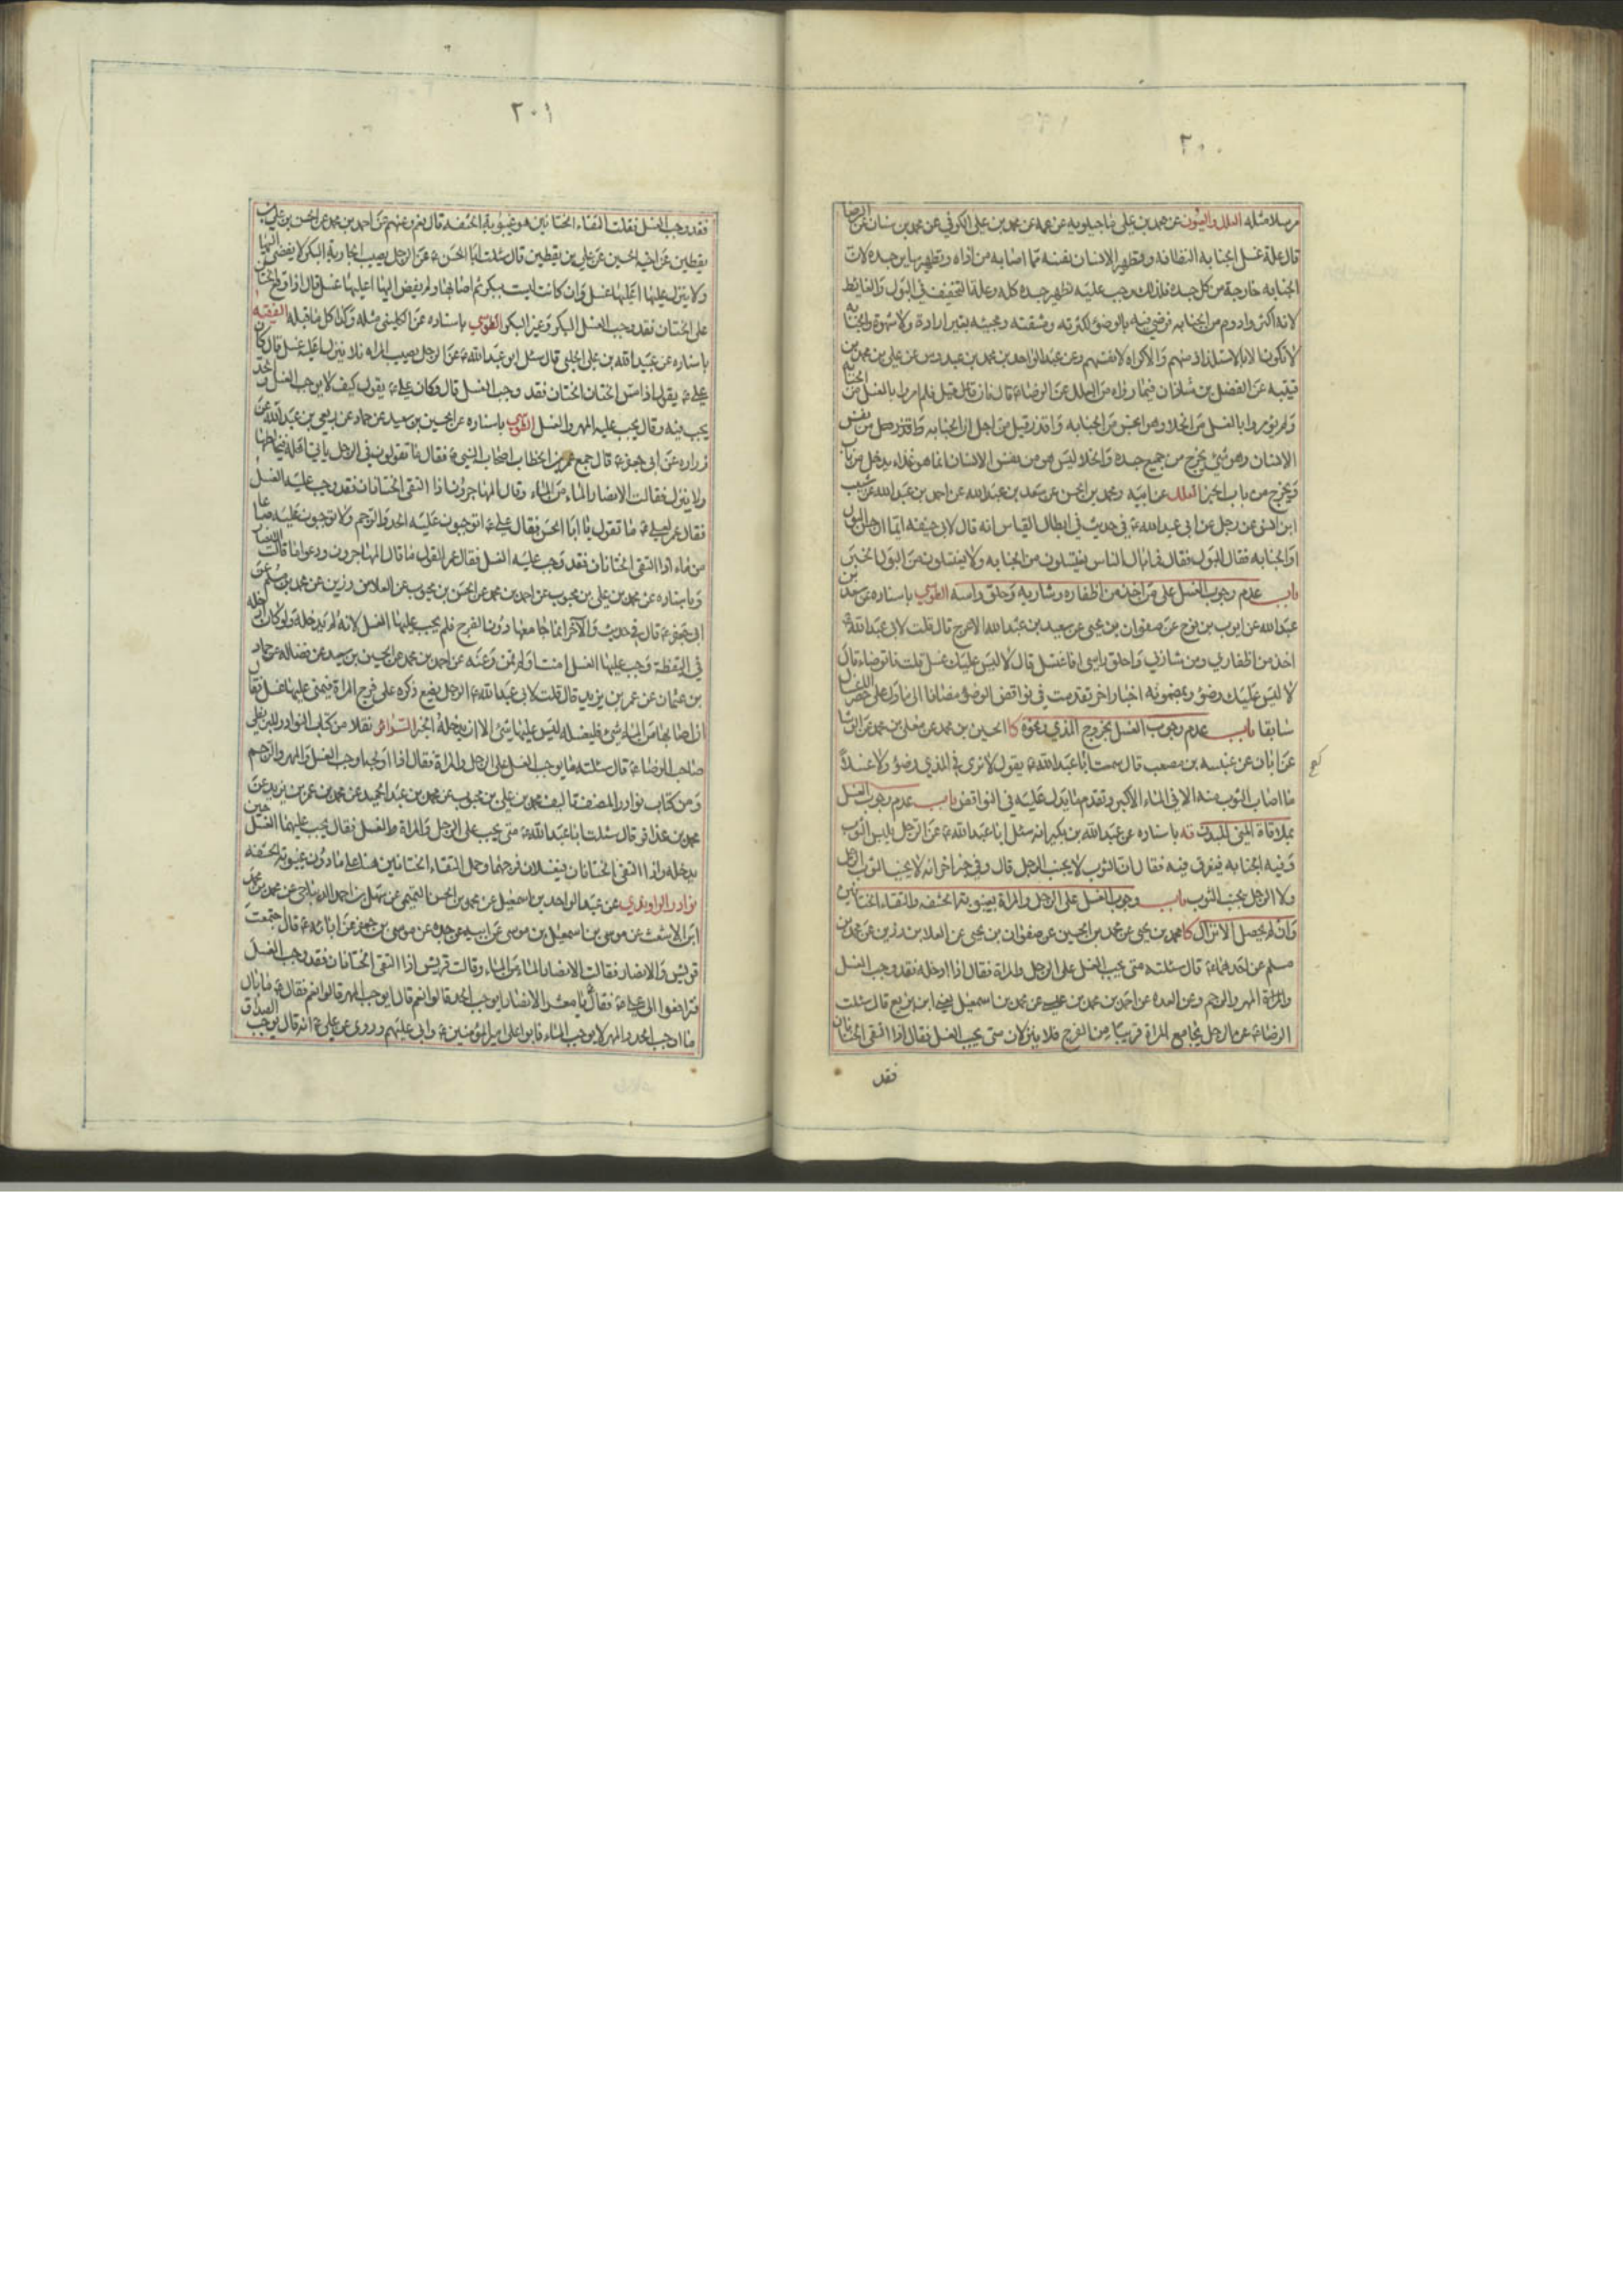 ٢٠٠
مرسلا مثله العلل والعيون عن محمد بن علي ماجيلويه عن عمه عن محمد بن علي الكوفي عن محمد بن سنان عن الرضا
قال علة غسل الجنابه النظافه وتطهير الانسان نفسه مما اصابه من اذاه وتطهير ساير جسده لان
الجنابه خارجة من كل جسده فلذلك وجب عليه تطهير جسده كله وعلة التخفيف في البول والغايط
لانه اكثر وادوم من الجنابه فرضي فيه بالوضوء لكثرته ومشقته ومجيئه بغير ارادة ولا شهوة والجنابه
لا تكون الا بالاستلذاذ منهم والاكراه لانفسهم وعن عبد الواحد بن محمد بن عبدوس عن علي بن محمد بن
قتيبه عن الفضل بن شاذان فيما رواه من العلل عن الرضا ع قال فان قائل قيل فلم امروا بالغسل من الجنابه
ولم يؤمروا بالغسل من الخلا وهو انجس من الجنابه واقذر قيل من اجل ان الجنابه من نفس
الانسان وهو شئ يخرج من جميع جسده والخلا ليس هو من نفس الانسان انما هو غذاء يدخل من باب
ويخرج من باب الخبر العلل عن ابيه ومحمد بن الحسن عن سعد بن عبدالله عن احمد بن عبدالله عن شبيب
ابن انس عن رجل عن ابي عبدالله ع في حديث في ابطال القياس انه قال لابي حنيفه ايما ارجس البول
او الجنابه فقال البول فقال فما بال الناس يغتسلون من الجنابه ولا يغتسلون من البول الخبر
باب عدم وجوب الغسل على من اخذ من اظفاره وشاربه وحلق راسه الطوسي باسناده عن سعد بن
عبدالله عن ايوب بن نوح عن صفوان بن يحيى عن سعيد بن عبدالله الاعرج قال قلت لابي عبدالله ع
اخذ من اظفاري ومن شاربي واحلق راسي افاغتسل قال لا ليس عليك غسل قلت فاتوضاء قال
لا ليس عليك وضوء وبمضمونه اخبار اخر تقدمت في نواقض الوضوء مضافا الى ما دل على حصر الاغسال
سابقا باب عدم وجوب الغسل بخروج المذي ونحوه كا الحسين بن محمد عن معلى بن محمد عن الوشا
عن ابان عن عنبسه بن مصعب قال سمعت ابا عبدالله ع يقول لا نرى في المذي وضوء ولا غسلا
ما اصاب الثوب منه الا في الماء الاكبر وتقدم ما يدل عليه في النواقض باب عدم وجوب الغسل
بملاقاة المني البدن يه باسناده عن عبدالله بن بكير انه سئل ابا عبدالله ع عن الرجل يلبس الثوب
وفيه الجنابه فيعرق فيه فقال ان الثوب لا يجنب الرجل قال وفي خبر اخر انه لا يجنب الثوب الرجل
ولا الرجل يجنب الثوب باب وجوب الغسل على الرجل والمراة بغيبوبة الحشفه والتقاء الختانين
وان لم يحصل الانزال كا محمد بن يحيى عن محمد بن الحسين عن صفوان بن يحيى عن العلا بن رزين عن محمد بن
مسلم عن احدهما ع قال سئلته متى يجب الغسل على الرجل والمراة فقال اذا ادخله فقد وجب الغسل
والمراة المهر والرجم وعن العده عن احمد بن محمد بن عيسى عن محمد بن اسمعيل يعني ابن بزيع قال سئلت
الرضا ع عن الرجل يجامع المراة قريبا من الفرج فلا ينزلان متى يجب الغسل فقال اذا التقى الختانان
فقد
٢٠١
فقد وجب الغسل فقلت التقاء الختانين هو غيبوبة الحشفه قال نعم وعنهم عن احمد بن محمد عن الحسن بن علي بن
يقطين عن اخيه الحسين عن علي بن يقطين قال سئلت ابا الحسن ع عن الرجل يصيب الجارية البكر لا يفضي اليها
ولا ينزل عليها اعليها غسل وان كانت ليست ببكر ثم اصابها ولم يفض اليها اعليها غسل قال اذا وقع الختان
على الختان فقد وجب الغسل البكر وغير البكر الطوسي باسناده عن الكليني مثله وكذا كل ما قبله الفقيه
باسناده عن عبيد الله بن علي الحلبي قال سئل ابو عبدالله ع عن الرجل يصيب المراه فلا ينزل اعليه غسل قال كان
علي ع يقول اذا مس الختان الختان فقد وجب الغسل قال وكان علي ع يقول كيف لا يوجب الغسل والحد
يجب فيه وقال يجب عليه المهر والغسل الطوسي باسناده عن الحسين بن سعيد عن حماد عن ربعي بن عبد الله عن
زراره عن ابي جعفر ع قال جمع عمر بن الخطاب اصحاب النبي ص فقال ما تقولون في الرجل ياتي اهله فيخالطها
ولا ينزل فقالت الانصار الماء من الماء وقال المهاجرون اذا التقى الختانان فقد وجب عليه الغسل
فقال عمر لعلي ع ما تقول يا ابا الحسن فقال علي ع اتوجبون عليه الحد والرجم ولا توجبون عليه صاعا
من ماء اذا التقى الختانان فقد وجب عليه الغسل فقال عمر القول ما قال المهاجرون ودعوا ما قالت الانصار
وباسناده عن محمد بن علي بن محبوب عن احمد بن محمد عن الحسن بن محبوب عن العلا بن رزين عن محمد بن مسلم عن
ابي جعفر ع قال في حديث والاخر انما جامعها دون الفرج فلم يجب عليها الغسل لانه لم يدخله ولو كان ادخله
في اليقظة وجب عليها الغسل امنت او لم تمن وعنه عن احمد بن محمد عن الحسين بن سعيد عن فضاله عن حماد
بن عثمان عن عمر بن يزيد قال قلت لابي عبدالله ع الرجل يضع ذكره على فرج المراة فيمني عليها غسل فقال
ان اصابها من الماء شئ فلتغسله ليس عليها شئ الا ان يدخله الخبر السرائر نقلا من كتاب النوادر للبزنطي
صاحب الرضا ع قال سئلته ما يوجب الغسل على الرجل والمراة فقال اذا اولجه اوجب الغسل والمهر والرجم
ومن كتاب نوادر المصنف تاليف محمد بن علي بن محبوب عن محمد بن عبد الحميد عن محمد بن عمر بن يزيد عن
محمد بن عذافر قال سئلت ابا عبدالله ع متى يجب على الرجل والمراة الغسل فقال يجب عليهما الغسل حين
يدخله واذا التقى الختانان فيغسلان فرجهما وحمل التقاء الختانين هنا على ما دون غيبوبة الحشفه
نوادر الراوندي عن عبد الواحد بن اسمعيل عن محمد بن الحسن التميمي عن سهل بن احمد الديباجي عن محمد بن محمد
ابن الاشعث عن موسى بن اسمعيل بن موسى عن ابيه عن جده عن موسى بن جعفر عن ابائه ع قال اجتمعت
قريش والانصار فقالت الانصار الماء من الماء وقالت قريش اذا التقى الختانان فقد وجب الغسل
فترافعوا الى علي ع فقال يا معشر الانصار ايوجب الحد قالوا نعم قال ايوجب المهر قالوا نعم فقال ع ما بال
ما اوجب الحد والمهر لا يوجب الماء فابوا على امير المؤمنين ع وابى عليهم وروي عن علي ع انه قال يوجب الصداق